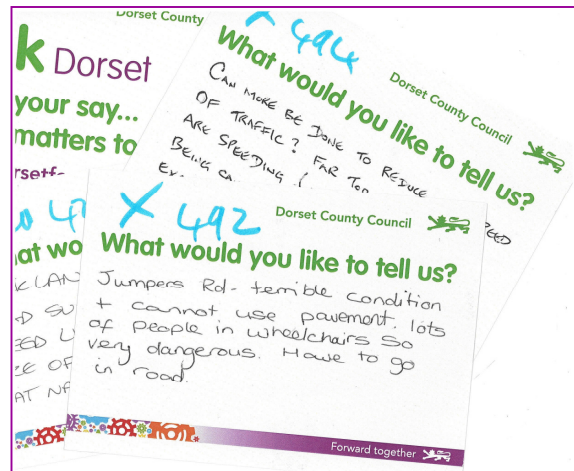 Dorset County
k Dorset
your say...
matters to
X 494
Dorset County Council
What would you like to tell us?
CAN MORE BE DONE TO REDUCE
OF TRAFFIC? FAR
ARE SPEEDING
BEING
X 492
Dorset County Council
What would you like to tell us?
Jumpers Rd - terrible condition
+ cannot use pavement. lots
of people in wheelchairs so
very dangerous. Have to go
in road.
Forward together